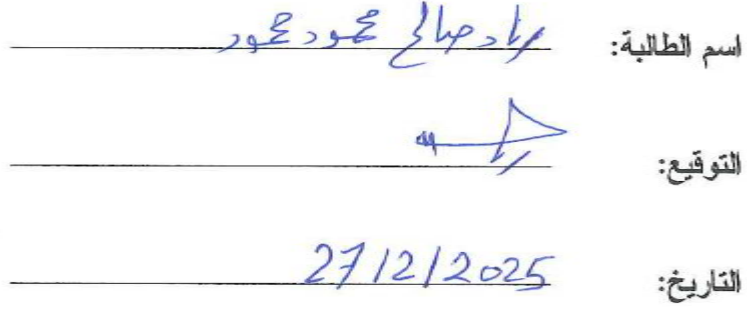 اسم الطالبة: صالح محمود محمود
التوقيع:
التاريخ: 27/2/2025